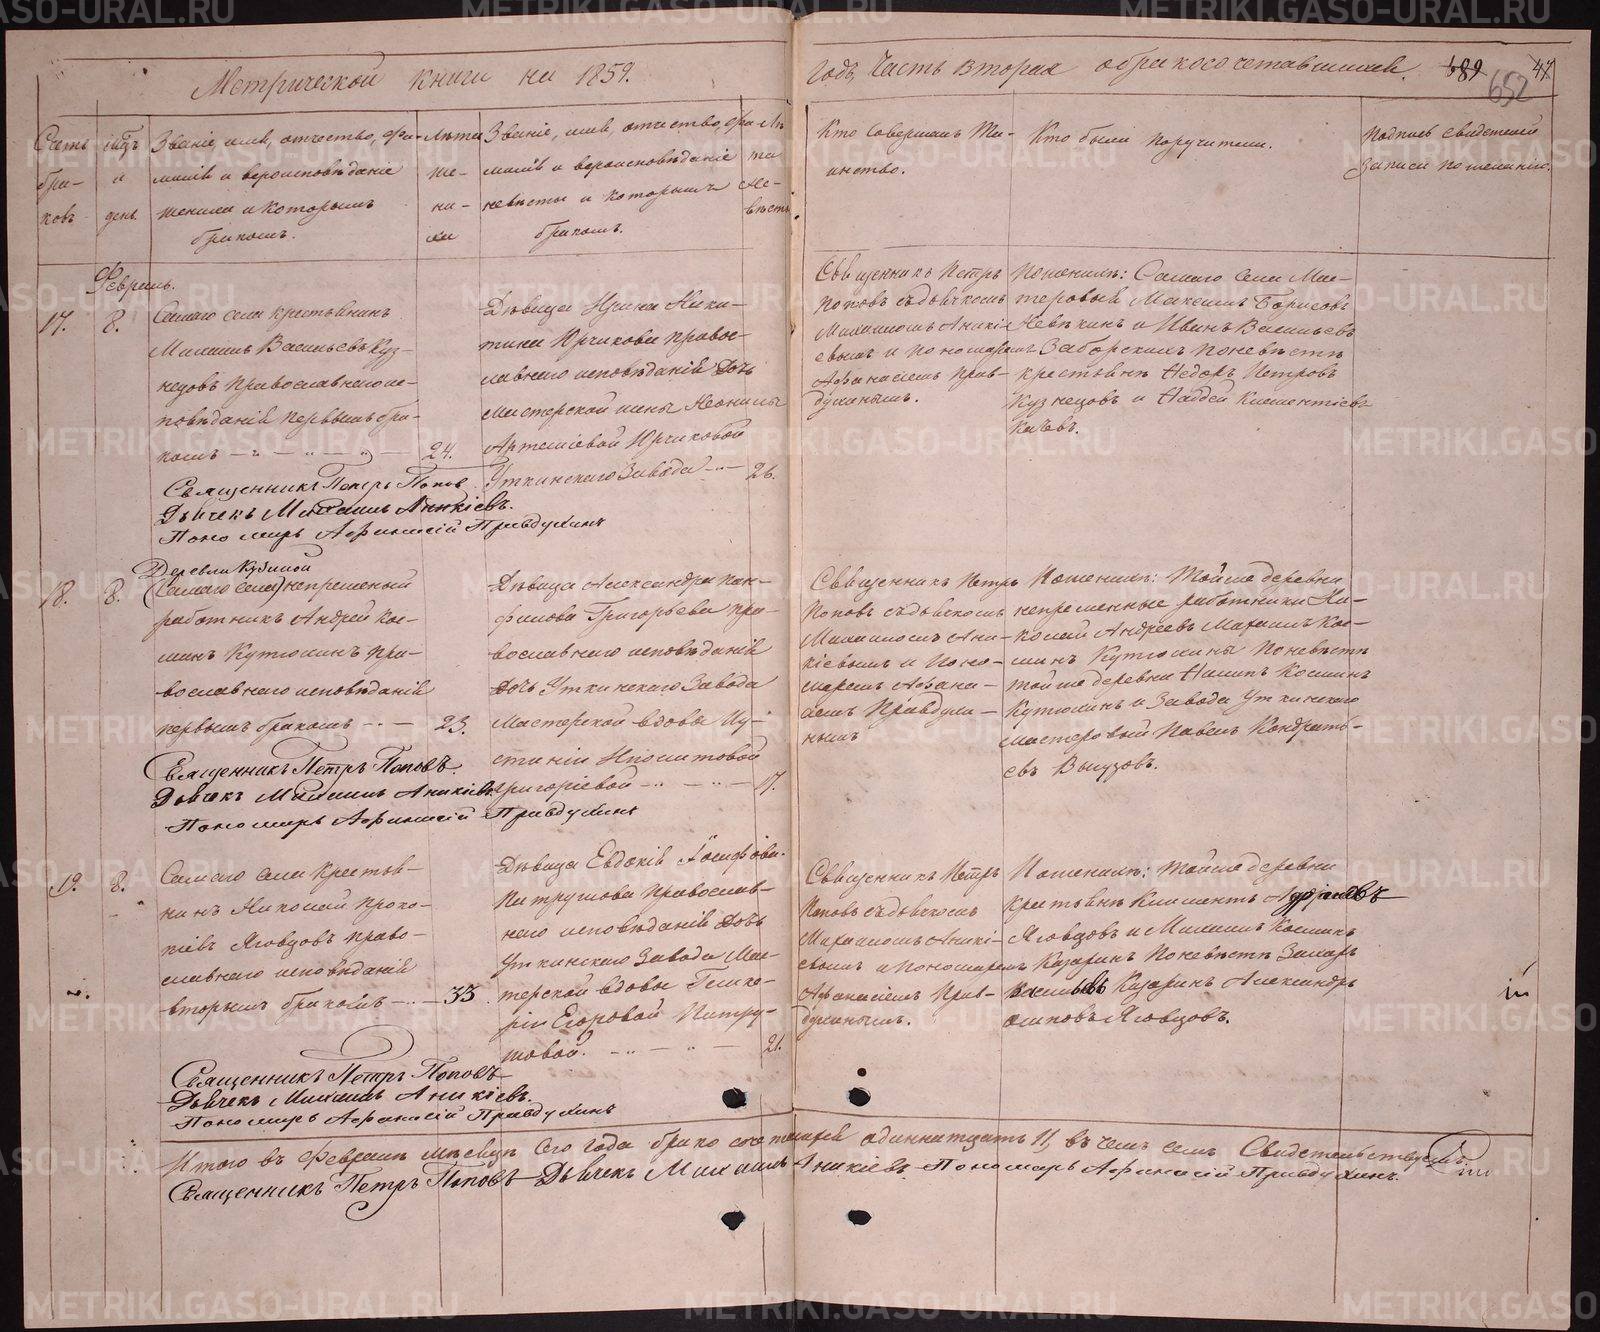 Метрической книги на 1859.
годъ, Часть вторая о бракосочетавшихся. 689 47
652
Счетъ бра- ковъ.
Мѣсяцъ и день
Званіе, имя, отчество, фа-
милія и вѣроисповѣданіе
жениха и которымъ
бракомъ.
Лѣта
же-
ни-
ха
Званіе, имя, отчество, фа-
милія и вѣроисповѣданіе
невѣсты и которымъ
бракомъ.
Лѣ-
та
не-
вѣсты
Кто совершалъ Та-
инство.
Кто были поручители.
Подпись свидѣтелей
записи по желанію.
Февраль.
17. 8.
Самаго села крестьянинъ
Михаилъ Васильевъ Куз-
нецовъ православнаго ис-
повѣданія первымъ бра-
комъ 24.
Дѣвица Ирина Ники-
тина Юрчикова правос-
лавнаго исповѣданія дочь
мастерской жены Неонилы
Артеміевой Юрчиковой
Уткинскаго Завода 26.
Священникъ Петръ
Поповъ съ дьячкомъ
Михаиломъ Аникі-
евымъ и пономаремъ
Афанасіемъ Прав-
духинымъ.
По женихѣ: Самаго села Мас-
теровый Максимъ Борисовъ
и Иванъ Васильевъ
Заборскихъ по невѣстѣ
крестьяне Федоръ Петровъ
Кузнецовъ и Фаддей Климентіевъ
Священникъ Петръ Попов
Дьячекъ Михаилъ Аникіевъ.
Пономарь Афанасій Правдухинъ
18. 8.
Деревни Кузиной
(Самаго села) непременный
работникъ Андрей Кос-
минъ Кутюминъ пра-
вославнаго исповѣданія
первымъ бракомъ 23.
Дѣвица Александра Пан-
филова Григорьева пра-
вославнаго исповѣданія
дочь Уткинскаго Завода
мастерской вдовы Иу-
стиніи Ипполитовой
Григоріевой 17.
Священникъ Петръ
Поповъ съ дьячкомъ
Михаиломъ Ани-
кіевымъ и поно-
маремъ Афана-
сіемъ Правдухи-
нымъ
По женихѣ: Той же деревни
непременные работники Ни-
колай Андреевъ Михаилъ Кос-
минъ Кутюмины По невѣстѣ
той же деревни Филипъ Косминъ
Кутюминъ и Завода Уткинскаго
мастеровый Павелъ Кондрать-
евъ Выгузовъ.
Священникъ Петръ Поповъ.
Дьячекъ Михаилъ Аникіевъ
Пономарь Афанасій Правдухинъ
19. 8.
Самаго села Крестья-
нинъ Николай Проко-
піевъ Яговцовъ право-
славнаго исповѣданія
вторымъ бракомъ 33
Дѣвица Евдокія Іосифова
Патрушова Православ-
наго исповѣданія дочь
Уткинскаго Завода Мас-
терской вдовы Глике-
ріи Егоровой Патру-
шовой. 21.
Священникъ Петръ
Поповъ съ дьячкомъ
Михаиломъ Аникі-
евымъ и пономаремъ
Афанасіемъ Прав-
духинымъ.
По женихѣ: Той же деревни
крестьяне Климентъ
Яговцовъ и Михаилъ Косминъ
Казаринъ По невѣстѣ Захаръ
Васильевъ Казаринъ Александръ
Осиповъ Яговцовъ.
Священникъ Петръ Поповъ
Дьячекъ Михаилъ Аникіевъ.
Пономарь Афанасій Правдухинъ
Итого въ Февралѣ мѣсяцѣ сего года бракосочетаній одиннатцать 11, въ чемъ симъ Свидетельствуемъ
Священникъ Петръ Поповъ Дьячекъ Михаилъ Аникіевъ. Пономарь Афанасій Правдухинъ.
METRIKI.GASO-URAL.RU